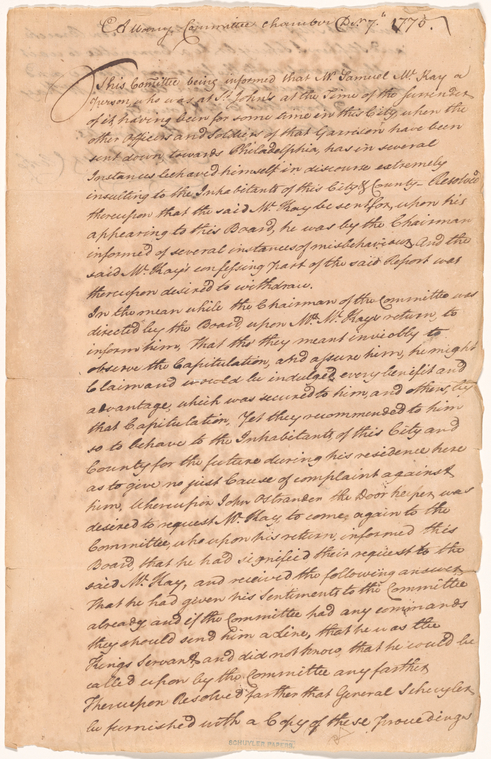 Albany Committee Chamber Decr. 7th. 1775.
This Comittee being informed that Mr. Samuel Mc. Kay a
Person who was at St. John's at the Time of the surrender
of it having been for some time in this City, when the
other Officers and Soldiers of that Garrison have been
sent down towards Philadelphia, has in several
Instances behaved himself in discourse extremely
insulting to the Inhabitants of this City & County Resolved
thereupon that the said Mc. Kay be sent for, upon his
appearing to this Board, he was by the Chairman
informed of several instances of misbehaviour And the
said Mc. Kay's confessing Part of the said Report was
thereupon desired to withdraw.
In the mean while the Chairman of the Committee was
directed by the Board, upon Mr. Mc. Kay's return, to
inform him, That tho they meant inviobly to
observe the Capitulation, and assure him, he might
Claim and would be indulged every benifit and
advantage, which was secured to him, and others, by
that Capitulation, Yet they recommended to him
so to behave to the Inhabitants of this City and
County for the future during his residence here
as to give no just Cause of complaint against
him, Whereupon John Ostrander the Door keeper was
desired to request Mr. Kay, to come again to the
Committee, who upon his return, informed this
Board, that he had signified their request to the
said Mc. Kay, and received the following answer
That he had given his Sentiments to the Committee
already and if the Committee had any commands
they should send him a Line, that he was the
Kings Servant, and did not know that he would be
called upon by the Committee any farther
Thereupon Resolved farther that General Schuyler
be furnished with a Copy of these Proceedings
SCHUYLER PAPERS